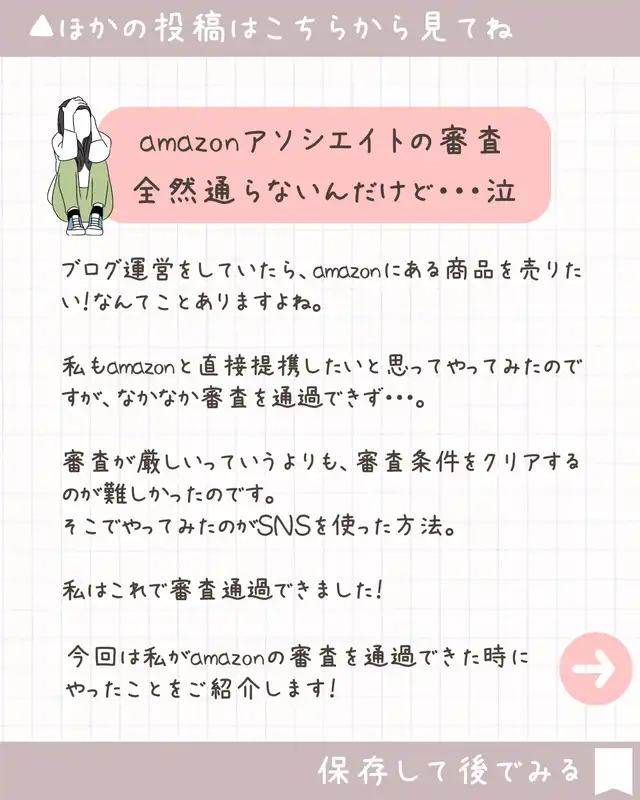 ▲ほかの投稿はこちらから見てね
amazonアソシエイトの審査
全然通らないんだけど・・・泣
ブログ運営をしていたら、amazonにある商品を売りた
い！なんてことありますよね。
私もamazonと直接提携したいと思ってやってみたので
すが、なかなか審査を通過できず・・・。
審査が厳しいっていうよりも、審査条件をクリアする
のが難しかったのです。
そこでやってみたのがSNSを使った方法。
私はこれで審査通過できました！
今回は私がamazonの審査を通過できた時に
やったことをご紹介します！
保存して後でみる